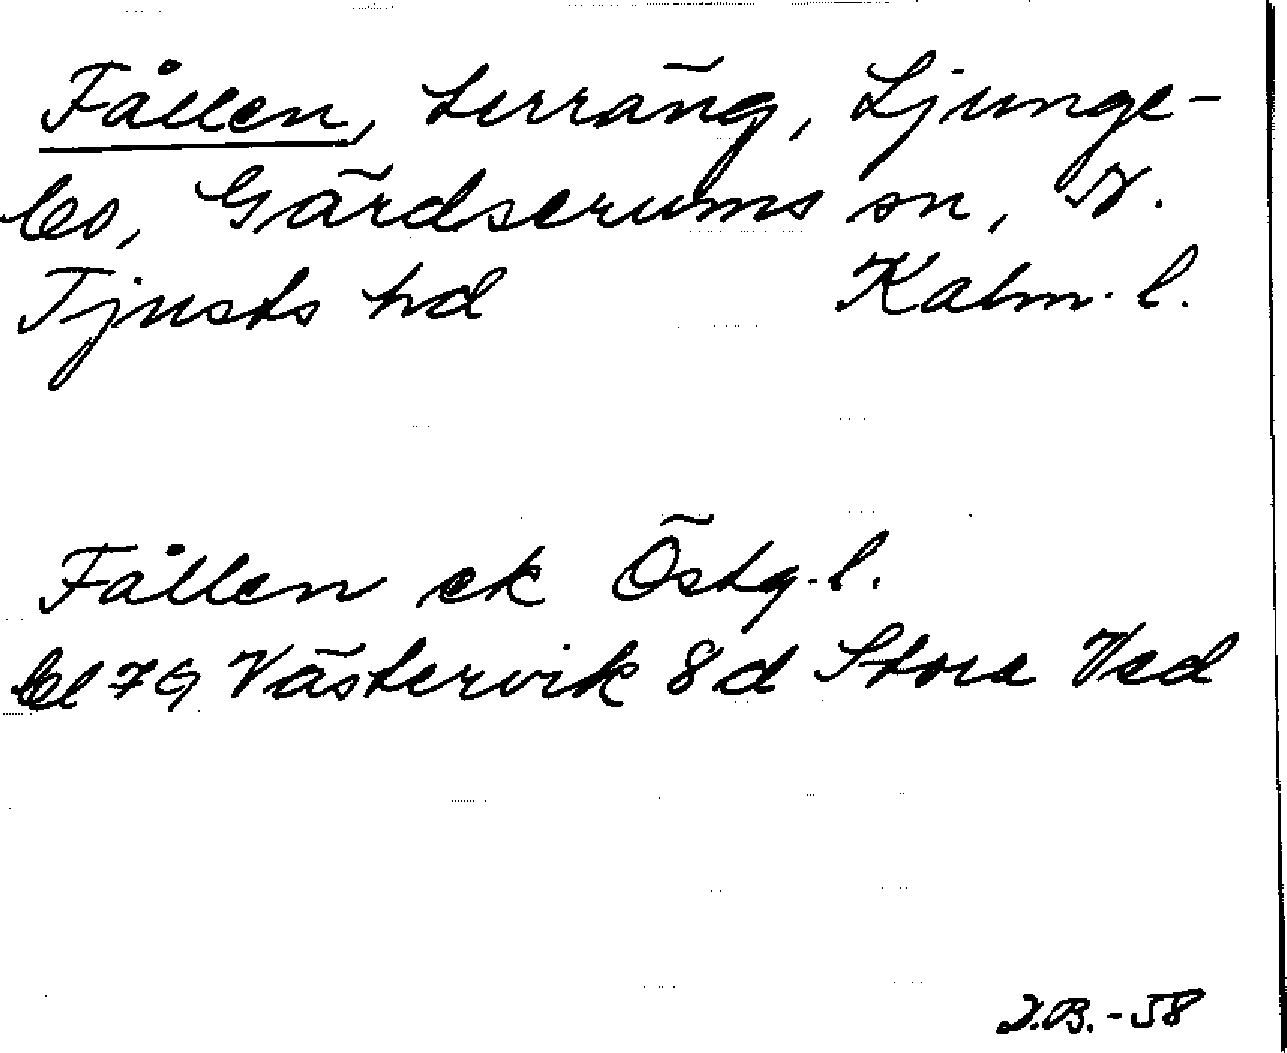 Fållen, terräng, Ljunge-
bo, Gärdserums sn, N.
Tjusts hd Kalm. l.
Fållen ek Östg. l.
bl 7G Västervik 8d Stora Ved